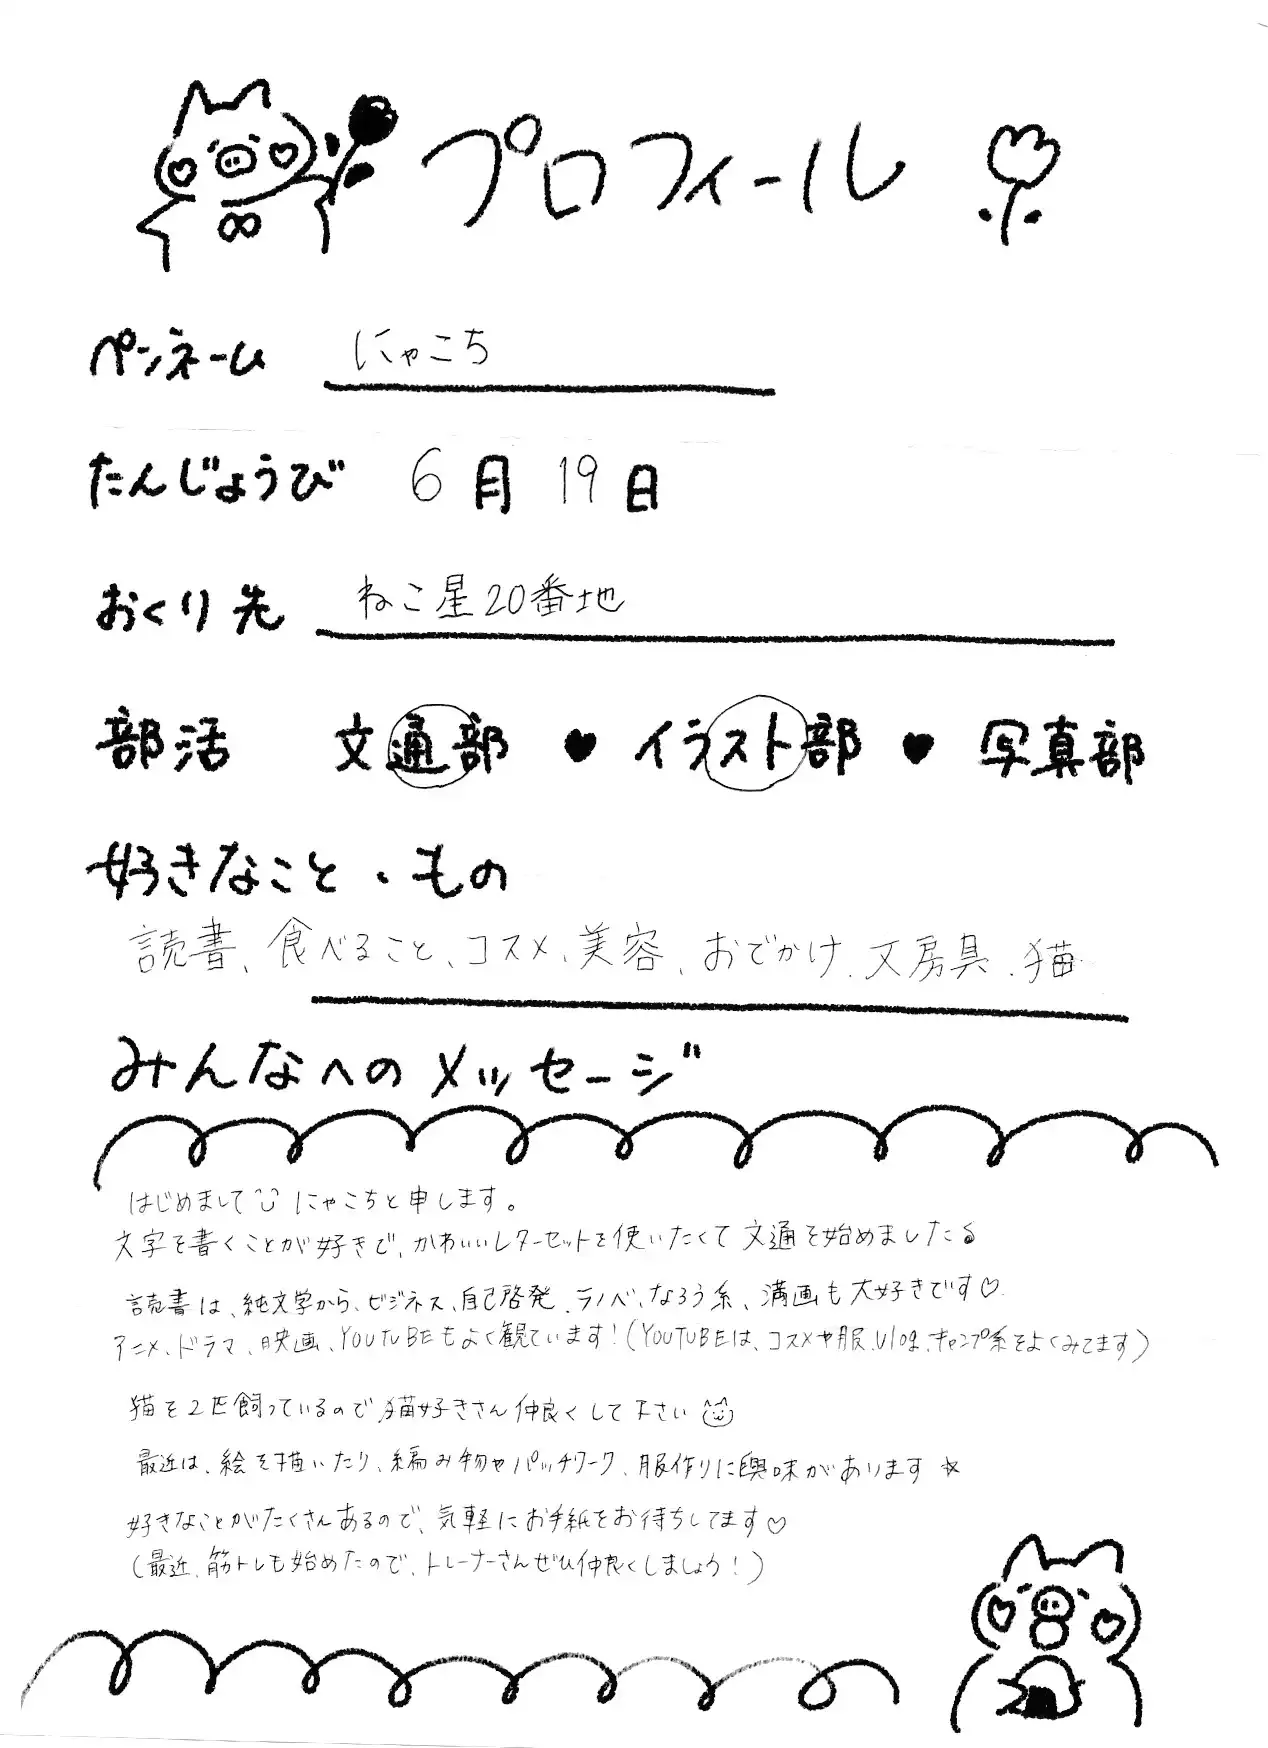 プロフィール
ペンネーム にゃこち
たんじょうび 6月19日
おくり先 ねこ星20番地
部活 文通部 ♥ イラスト部 ♥ 写真部
好きなこと・もの
読書、食べること、コスメ、美容、おでかけ、文房具、猫
みんなへのメッセージ
はじめまして にゃこちと申します。
文字を書くことが好きで、かわいいレターセットを使いたくて文通を始めました
読書は、純文学から、ビジネス、自己啓発、ラノベ、なろう系、漫画も大好きです♡
アニメ、ドラマ、映画、YOUTUBEもよく観ています!(YOUTUBEは、コスメや服、Vlog、キャンプ系をよくみてます)
猫を2匹飼っているので、猫好きさん仲良くして下さい
最近は、絵を描いたり、編み物やパッチワーク、服作りに興味があります☆
好きなことがたくさんあるので、気軽にお手紙をお待ちしてます♡
(最近、筋トレも始めたので、トレーナーさんぜひ仲良くしましょう!)